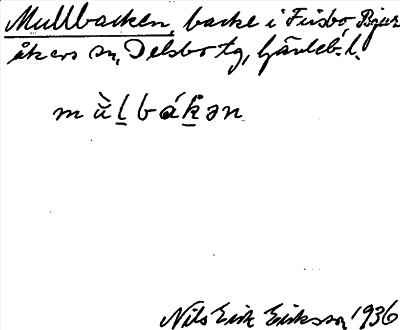 Mullbacken, backe i Fribo, Bjur-
åkers sn, Delsbo tg, Gävleb. l.
m ù̆ l̲ b á k̲ ə n
Nils Erik Eriksson 1936